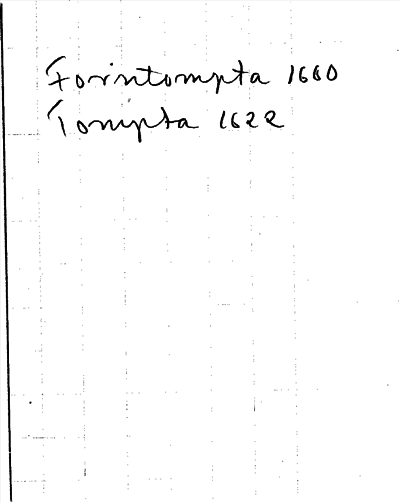 Forintompta 1660
Tompta 1622